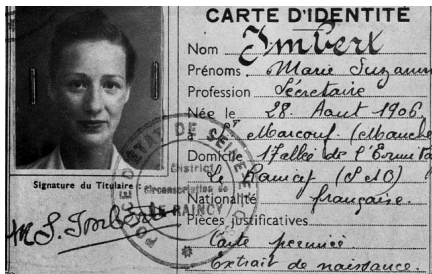 CARTE D'IDENTITÉ
Nom Imbert
Prénoms Marie Suzanne
Profession Secrétaire
Née le 28 Aout 1906
à St Marcouf (Manche
Domicile 17 allée de l'Ermita
Le Raincy (S&O)
Nationalité française.
Pièces justificatives
Carte
Extrait de naissance.
Signature du Titulaire :
M S. Imbert
POLICE D'ETAT DE SEINE
District
Circonscription de
LE RAINCY